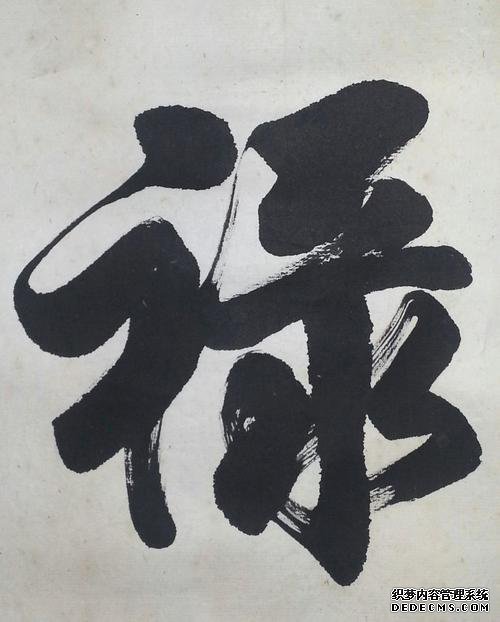 禄
织梦内容管理系统
DEDECMS.COM